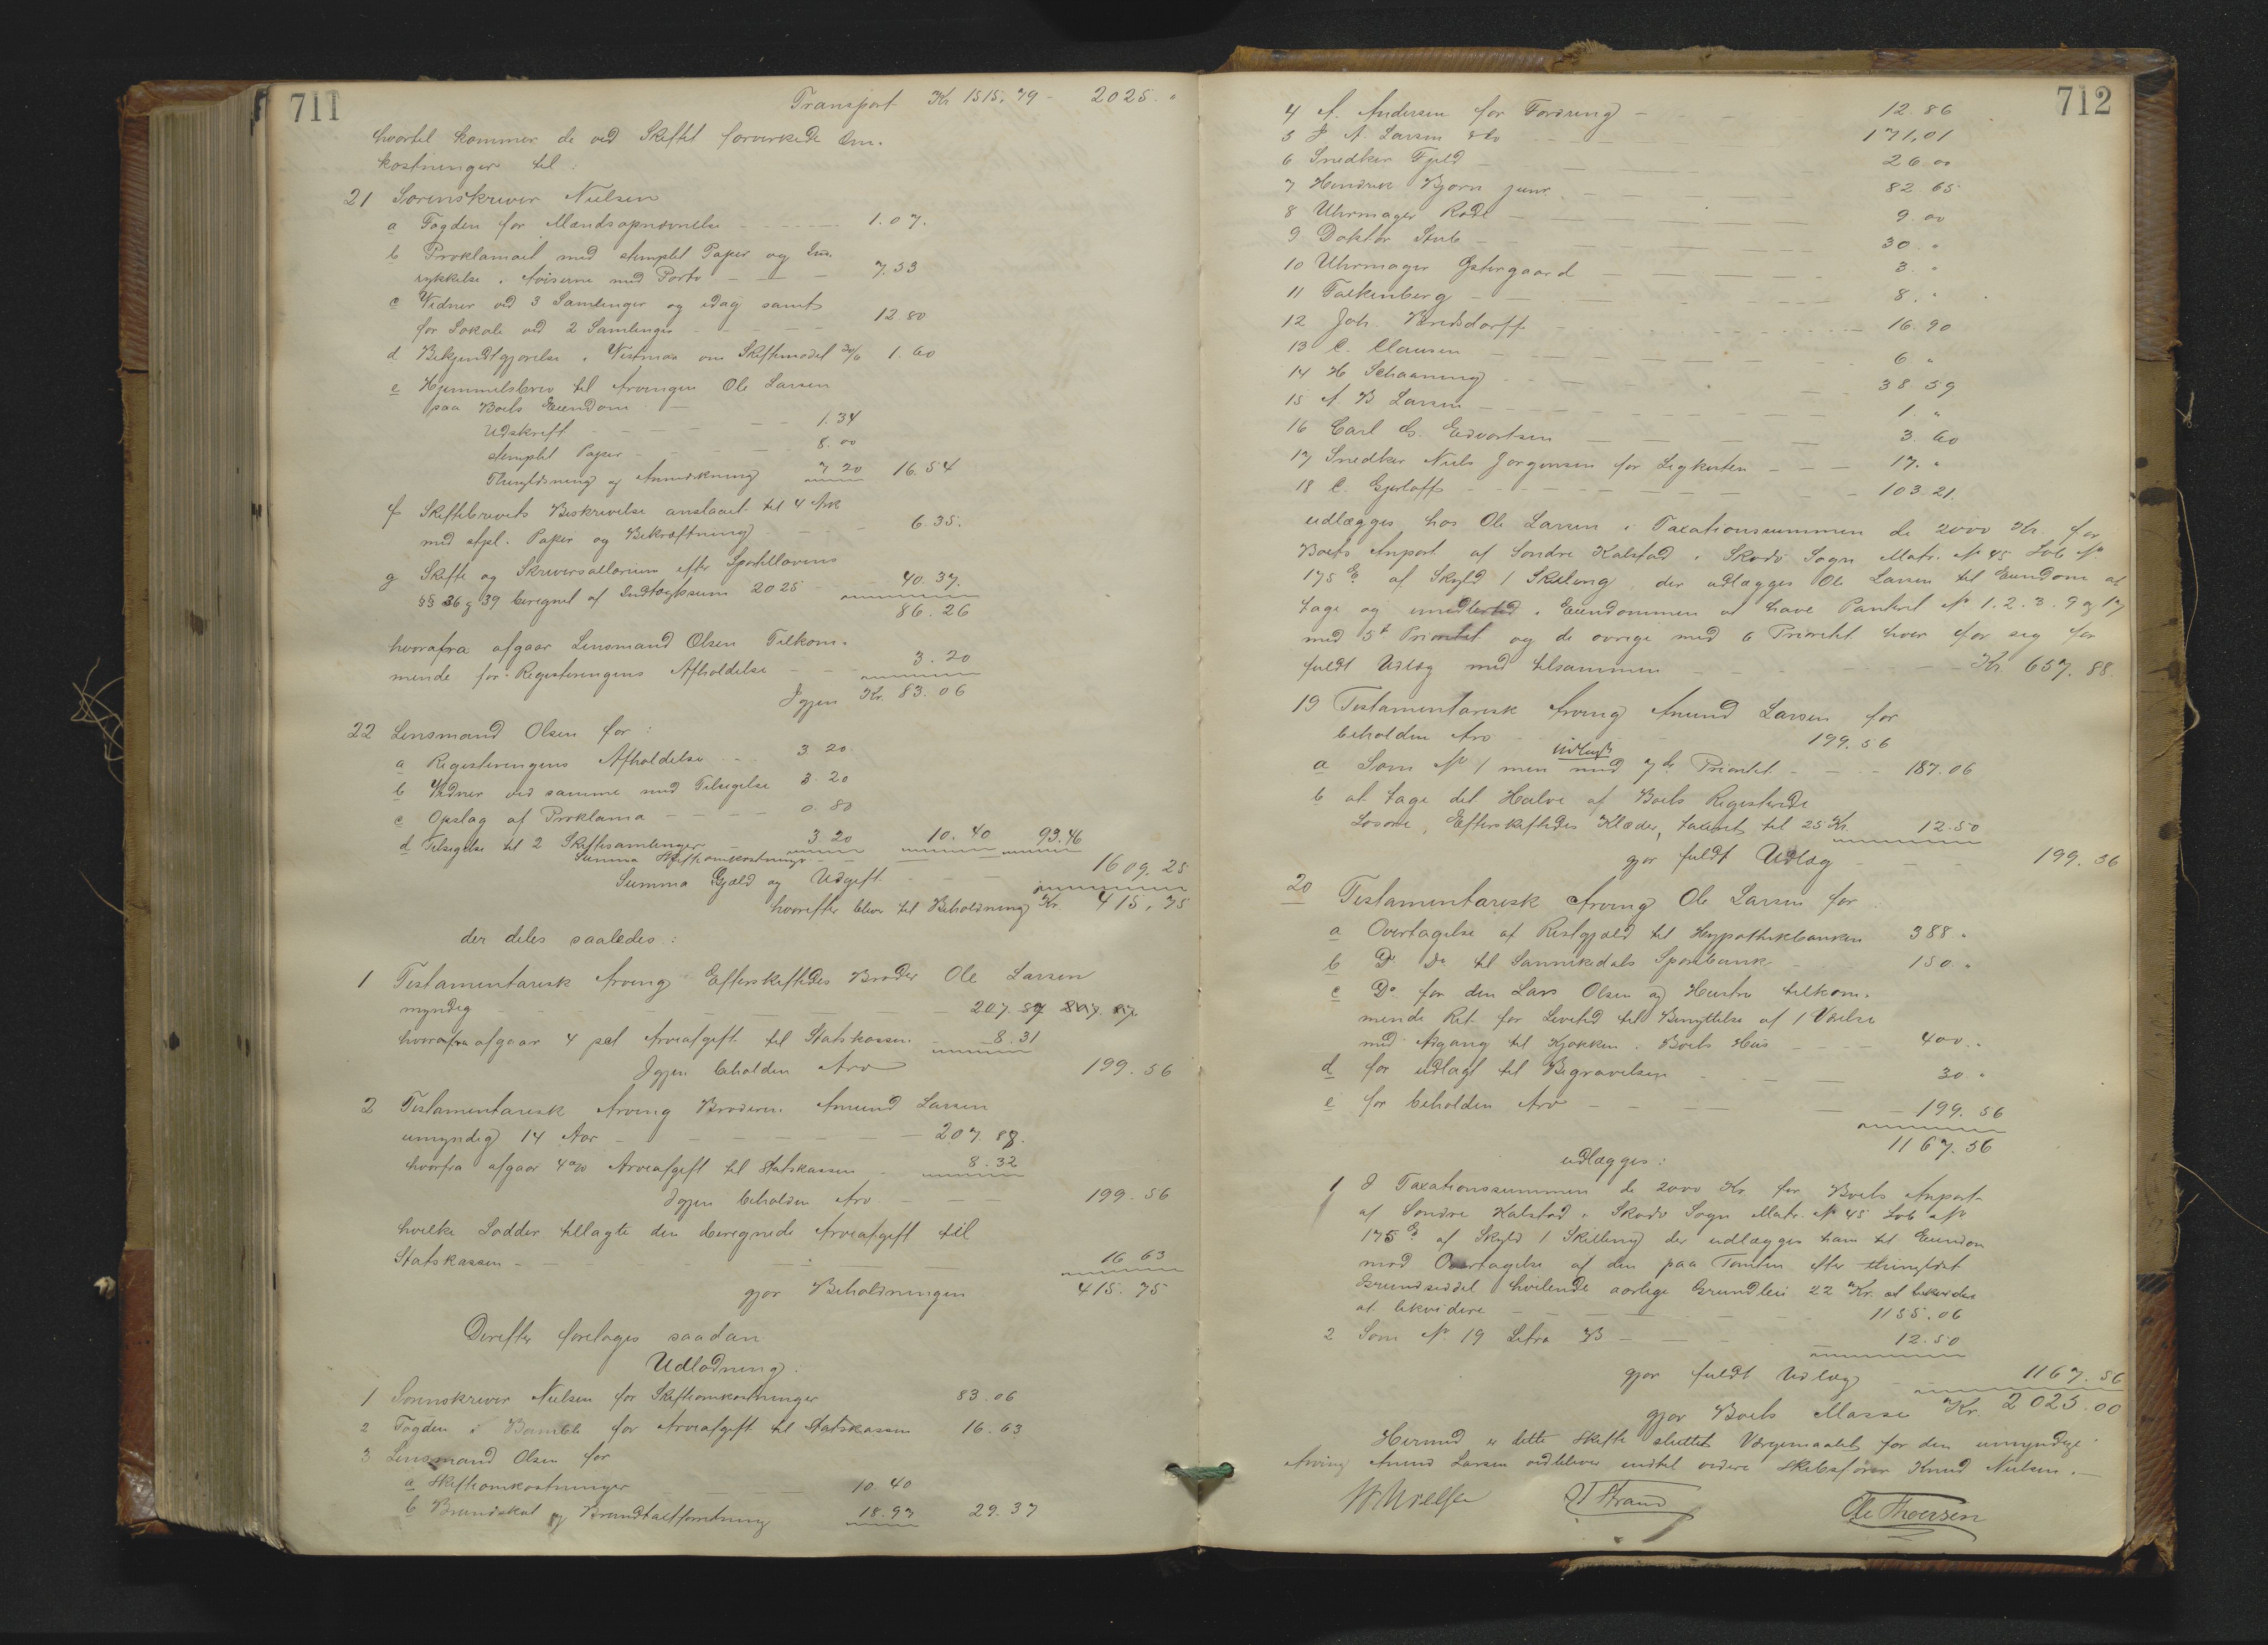 711
Transport Kr 1515,79 - 2025. "
hvortil kommer de ved Skiftet forvirkede Om-
kostninger til:
21 Sorenskriver Nielsen
a Fogden for Mandsopnævnelse - - - 1.07.
b Proklamaet med stemplet Papir og Ind-
rykkelse i Aviserne med Porto - - - 7.53
c Vidner ved 3 Samlinger og idag samt
for Lokale ved 2 Samlinger - - - 12.80
d Bekjendtgjørelse i Vestmar om Skiftemødet 30/6 1.60
e Hjemmelsbrev til Arvingen Ole Larsen
paa Boets Eiendom -
Udskrift - - - 1.34
stemplet Papir - - - 8.00
Thinglæsning og Anmærkning 7 20 16.54
f Skiftebrevets Beskrivelse anslaaet til 4 Ark
med stpl. Papir og Bekræftning - 6.35.
g Skifte og Skriversallarium efter Sportelloven
§§ 36 og 39 beregnet af Indtægtssum 2025 - 40.37.
86.26
hvorafra afgaar Lensmand Olsen Tilkom-
mende for Registreringens Afholdelse - - 3.20
Igjen Kr. 83.06
22 Lensmand Olsen for:
a Registreringens Afholdelse - - 3.20
b Vidner ved samme med Tilsigelse 3.20
c Opslag af Proklama - - - 0.80
d Tilsigelse til 2 Skiftesamlinger - 3.20 10.40 93.46
Summa Skifteomkostninger - -
Summa Gjæld og Udgift - - - 1609.25
hvorefter bliver til Beholdning Kr. 415,75
der deles saaledes:
1 Testamentarisk Arving Efterskiftedes Broder Ole Larsen
myndig - - - 207. 87
hvorafra afgaar 4 pct Arveafgift til Statskassen - 8.31
Igjen beholden Arv 199.56
2 Testamentarisk Arving Broderen Amund Larsen
umyndig 14 Aar - - - 207 88.
hvorfra afgaar 4% Arveafgift til Statskassen - 8.32
Igjen beholden Arv - - - 199.56
hvilke Lodder tillagte den beregnede Arveafgift til
Statskassen - - - 16 63
gjør Beholdningen 415.75
Derefter foretages saadan
Udlodning:
1 Sorenskriver Nielsen for Skifteomkostninger 83.06
2 Fogden i Bamble for Arveafgift til Statskassen 16.63
3 Lensmand Olsen for
a Skifteomkostninger - - - 10 40
b Brandskat og Brandtaxtforretning 18.97 29.37
712
4 A. Andersen for Fordring - - - 12.86
5 J A. Larsen do - - - 171,01
6 Snedker Fjeld - - - 26.00
7 Hendrik Bjørn junr. - - - 82.65
8 Uhrmager Rode - - - 9.00
9 Doktor Stub - - - 30. "
10 Uhrmager Østergaard - - - 3. "
11 Falkenberg - - - 8. "
12 Joh. Bredsdorff - - - 16.90
13 C. Clausen - - - 6 "
14 H Schaaning - - - 38.59
15 A. B Larsen - - - 1. "
16 Carl Edvartsen - - - 3.60
17 Snedker Niels Jørgensen for Ligkisten - - - 17. "
18 C. Gjerløff - - - 103.21.
udlægges hos Ole Larsen i Taxationssummen de 2000 Kr. for
Boets Anpart af Søndre Kalstad i Skodø Sogn Matr. No 45 Løb No
175 af Skyld 1 Skilling der udlægges Ole Larsen til Eiendom at
tage og imidlertid i Eiendommen at have Panteret No 1.2.3.9 og 17
med 5t Prioritet og de øvrige med 6 Prioritet hver for sig for
fuldt Udlæg med tilsammen - - - Kr. 657.88.
19 Testamentarisk Arving Amund Larsen for
beholden Arv - 199.56
udlægges
a Som No 1 men med 7de Prioritet - - - 187.06
b at tage det Halve af Boets Registrerede
Løsøre, Efterskiftedes Klæder, taxeret til 25 Kr. 12.50
gjør fuldt Udlæg - - - 199.56
20 Testamentarisk Arving Ole Larsen for
a Overtagelse af Restgjæld til Hypothekbanken 388 "
b Do Do til Sannikedals Sparebank - - 150. "
c Do for den Lars Olsen og Hustru tilkom-
mende Ret for Levetid til Benyttelse af 1 Værelse
med Adgang til Kjøkken i Boets Hus - - - 400. "
d for udlagt til Begravelsen - - - 30. "
e for beholden Arv - - - 199.56
1167.56
udlægges:
1 I Taxationssummen de 2000 Kr. for Boets Anpart
af Søndre Kalstad i Skodø Sogn Matr. No 45 Løb No
175 af Skyld 1 Skilling der udlægges ham til Eiendom
mod Overtagelse af den paa Tomten efter thinglæst
Grundseddel hvilende aarlige Grundleie 22 Kr. at likvidere
at likvidere - - - 1155.06
2 Som No 19 Litra B - - - 12.50
gjør fuldt Udlæg - - 1167.56
gjør Boets Masse Kr. 2025.00
Hermed er dette Skifte sluttet Værgemaalet for den umyndige
Arving Amund Larsen vedbliver indtil videre Skibsfører Knud Nielsen. -
W Nielsen T Strand Ole Thoersen